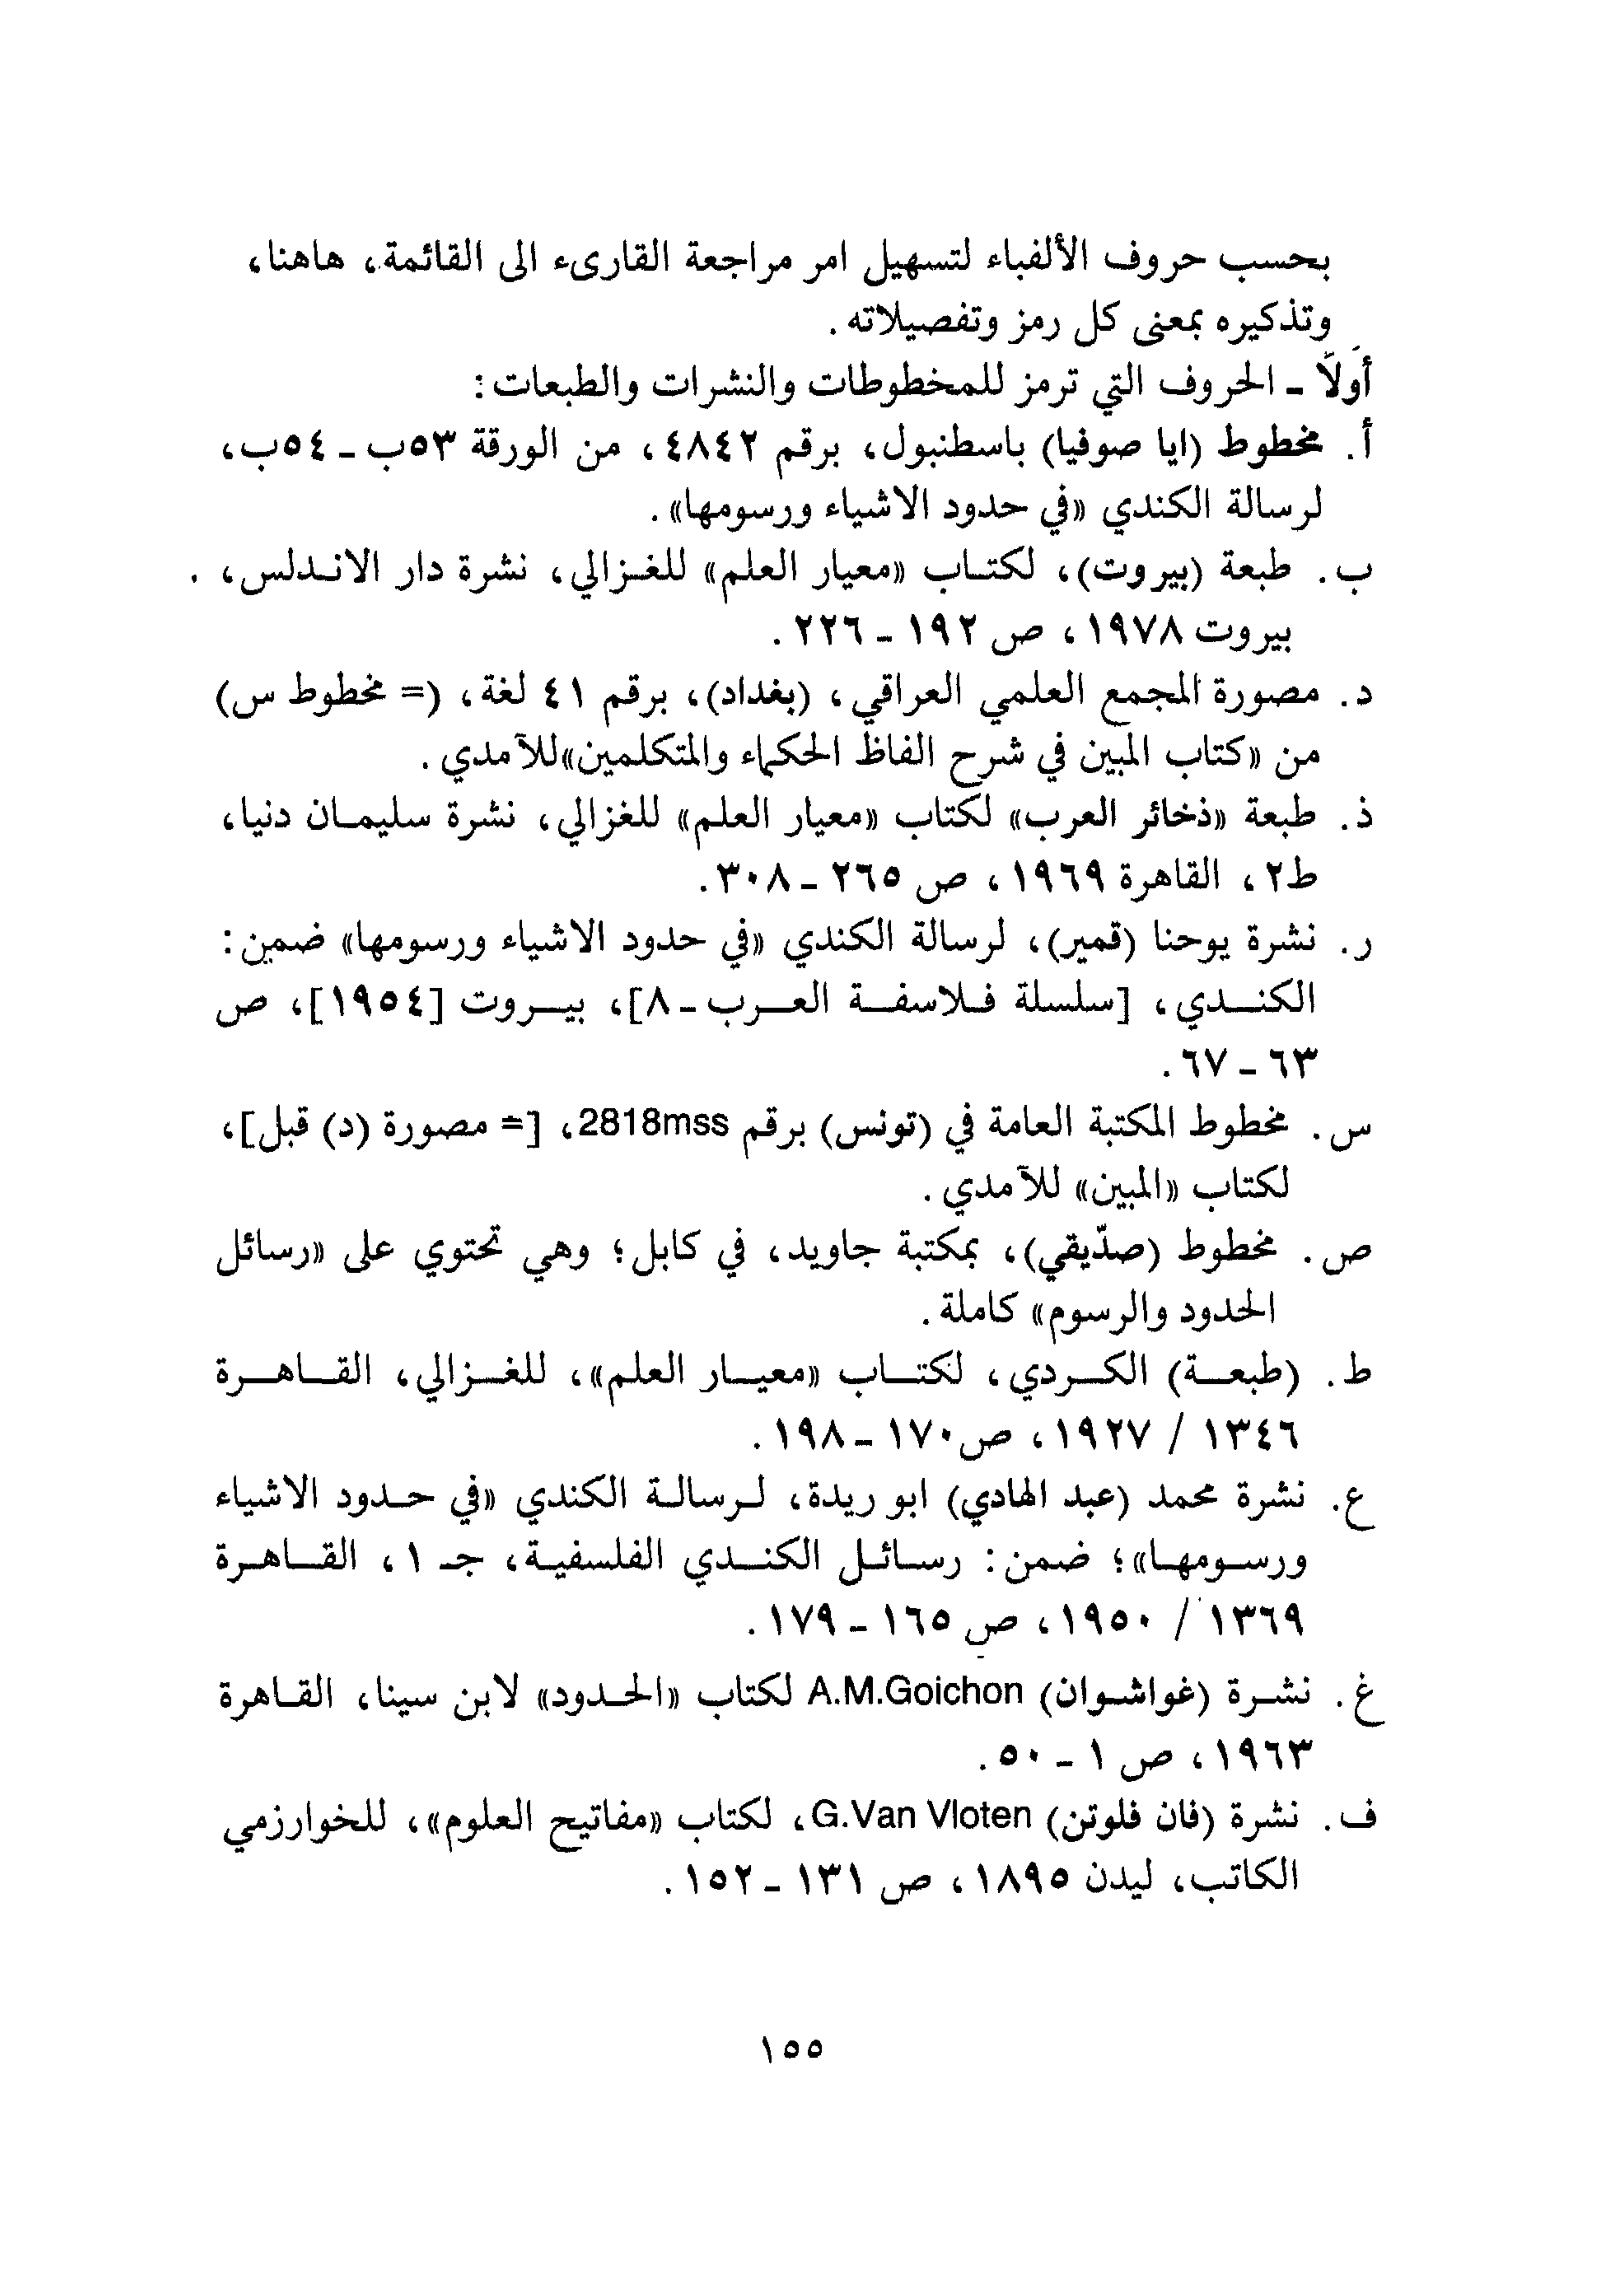 بحسب حروف الألفباء لتسهيل امر مراجعة القارىء الى القائمة، هاهنا،
وتذكيره بمعنى كل رمز وتفصيلاته.
أولاً - الحروف التي ترمز للمخطوطات والنشرات والطبعات:
أ. مخطوط (ايا صوفيا) باسطنبول، برقم ٤٨٤٢، من الورقة ٥٣ب - ٥٤ب،
لرسالة الكندي «في حدود الاشياء ورسومها».
ب. طبعة (بيروت)، لكتاب «معيار العلم» للغزالي، نشرة دار الاندلس،
بيروت ١٩٧٨، ص ١٩٢ - ٢٢٦.
د. مصورة المجمع العلمي العراقي، (بغداد)، برقم ٤١ لغة، (= مخطوط س)
من «كتاب المبين في شرح الفاظ الحكماء والمتكلمين» للآمدي.
ذ. طبعة «ذخائر العرب» لكتاب «معيار العلم» للغزالي، نشرة سليمان دنيا،
ط٢، القاهرة ١٩٦٩، ص ٢٦٥ - ٣٠٨.
ر. نشرة يوحنا (قمير)، لرسالة الكندي «في حدود الاشياء ورسومها» ضمن:
الكندي، [سلسلة فلاسفة العرب - ٨]، بيروت [١٩٥٤]، ص
٦٣ - ٦٧.
س. مخطوط المكتبة العامة في (تونس) برقم 2818mss، [= مصورة (د) قبل]،
لكتاب «المبين» للآمدي.
ص. مخطوط (صدّيقي)، بمكتبة جاويد، في كابل؛ وهي تحتوي على «رسائل
الحدود والرسوم» كاملة.
ط. (طبعة) الكردي، لكتاب «معيار العلم»، للغزالي، القاهرة
١٣٤٦ / ١٩٢٧، ص١٧٠ - ١٩٨.
ع. نشرة محمد (عبد الهادي) ابو ريدة، لرسالة الكندي «في حدود الاشياء
ورسومها»؛ ضمن: رسائل الكندي الفلسفية، جـ ١، القاهرة
١٣٦٩ / ١٩٥٠، ص ١٦٥ - ١٧٩.
غ. نشرة (غواشوان) A.M.Goichon لكتاب «الحدود» لابن سينا، القاهرة
١٩٦٣، ص ١ - ٥٠.
ف. نشرة (فان فلوتن) G.Van Vloten، لكتاب «مفاتيح العلوم»، للخوارزمي
الكاتب، ليدن ١٨٩٥، ص ١٣١ - ١٥٢.
١٥٥